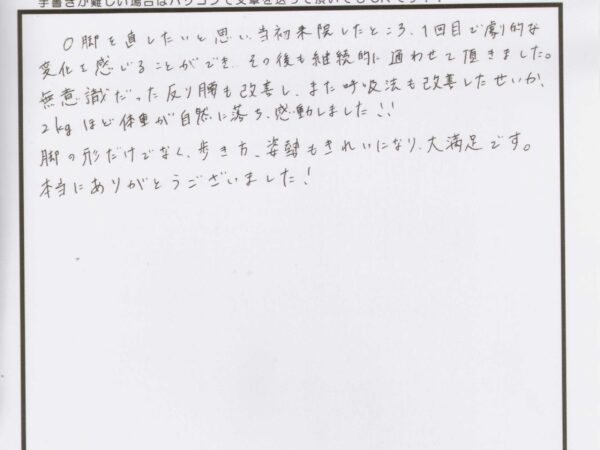 手書きが難しい場合はパソコンで文章を送って頂いてもOKです！！
O脚を直したいと思い当初来院したところ、1回目で劇的な
変化を感じることができ、その後も継続的に通わせて頂きました。
無意識だった反り腰も改善し、また呼吸法も改善したせいか、
2kgほど体重が自然に落ち、感動しました!!
脚の形だけでなく、歩き方、姿勢もきれいになり、大満足です。
本当にありがとうございました!